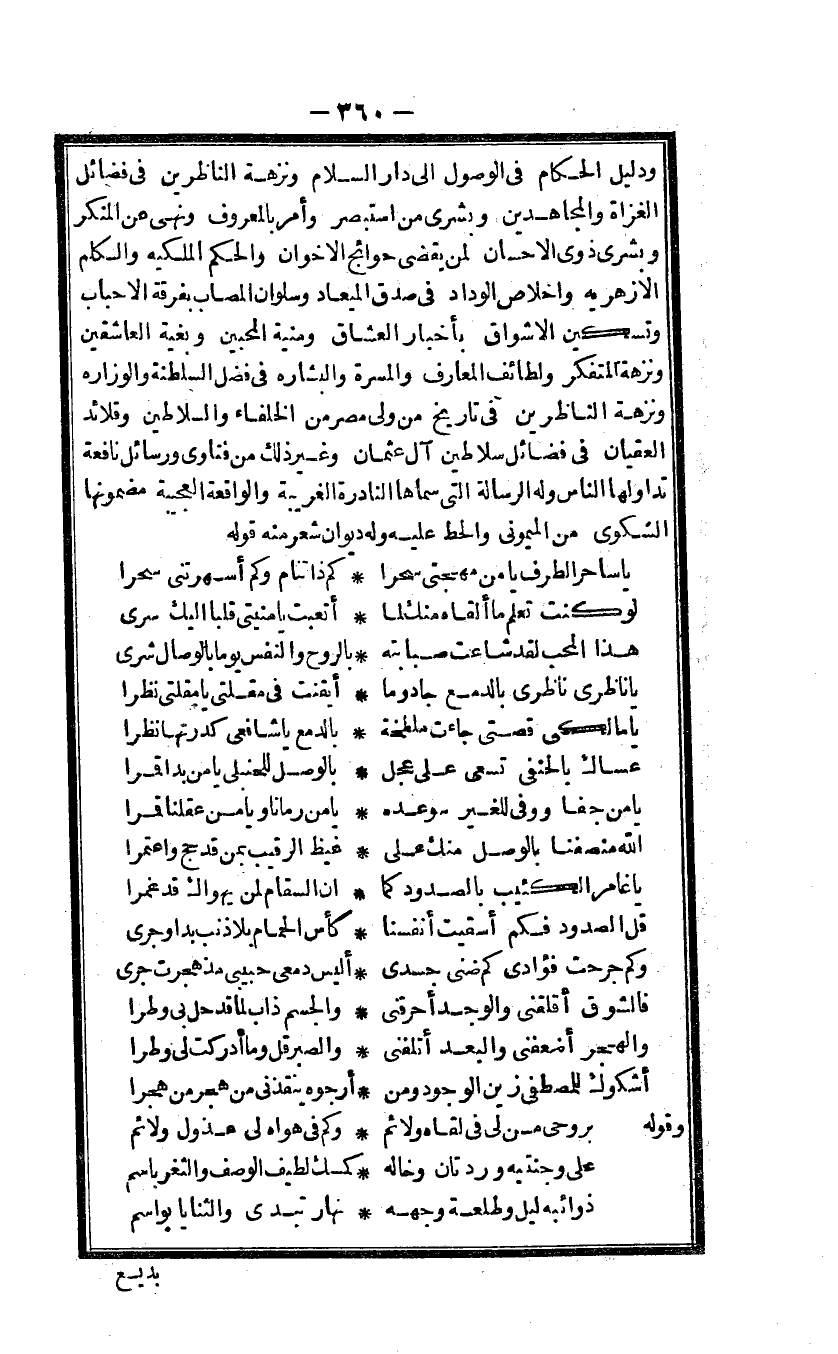 — ٣٦٠ —
ودليل الحكام فى الوصول الى دار السلام ونزهة الناظرين فى فضائل
الغزاة والمجاهدين وبشرى من استبصر وأمر بالمعروف ونهى عن المنكر
وبشرى ذوى الاحسان لمن يقضى حوائج الاخوان والحكم الملكيه والكلم
الازهريه واخلاص الوداد فى صدق الميعاد وسلوان المصاب بفرقة الاحباب
وتسكين الاشواق بأخبار العشاق ومنية المحبين وبغية العاشقين
ونزهة المتفكر ولطائف المعارف والمسرة والبشاره فى فضل السلطنة والوزاره
ونزهة الناظرين فى تاريخ من ولى مصر من الخلفاء والسلاطين وقلائد
العقيان فى فضائل سلاطين آل عثمان وغير ذلك من فتاوى ورسائل نافعة
تداولها الناس وله الرسالة التى سماها النادرة الغريبة والواقعة العجيبة مضمونها
الشكوى من الميمونى والحط عليه وله ديوان شعر منه قوله
يا ساحر الطرف يا من مهجتى سحرا * كم ذا تنام وكم أسهرتنى سحرا
لو كنت تعلم ما ألقاه منك لما * أتعبت يا منيتى قلبا اليك سرى
هذا المحب لقد شاعت صبابته * بالروح والنفس يوما بالوصال شرى
يا ناظرى ناظرى بالدمع جاد وما * أبقنت فى مقلتى يا مقلتى نظرا
يا مالكى قصتى جاءت ملطخة * بالدمع يا شافعى كدرتها نظرا
عساك بالحنفى تسعى على عجل * بالوصل للحنبلى يا من بدا قمرا
يا من جفا ووفى للغير موعده * يا من رمانا ويا من عقلنا قمرا
الله منصفنا بالوصل منك على * غيظ الرقيب بمن قد حج واعتمرا
يا غامر الكئيب بالصدود كما * ان السقام لمن يهواك قد غمرا
قل الصدود فكم أسقيت أنفسنا * كأس الحمام بلا ذنب بدا وجرى
وكم جرحت فؤادى كم ضنى جسدى * أليس دمعى حبيبى مذ هجرت جرى
فالشوق أقلقنى والوجد أحرقنى * والجسم ذاب لما قد حل بى وطرا
والهجر أضعفنى والبعد أتلفنى * والصبر قل وما أدركت لى وطرا
أشكوك للمصطفى زين الوجود ومن * أرجوه ينقذنى من هجر من هجرا
وقوله بروحى من لى فى لقاه ولائم * وكم فى هواه لى عذول ولائم
على وجنتيه وردتان وخاله * كمسك لطيف الوصف والثغر باسم
ذوائبه ليل وطلعة وجهه * نهار تبدى والثنايا بواسم
بديع